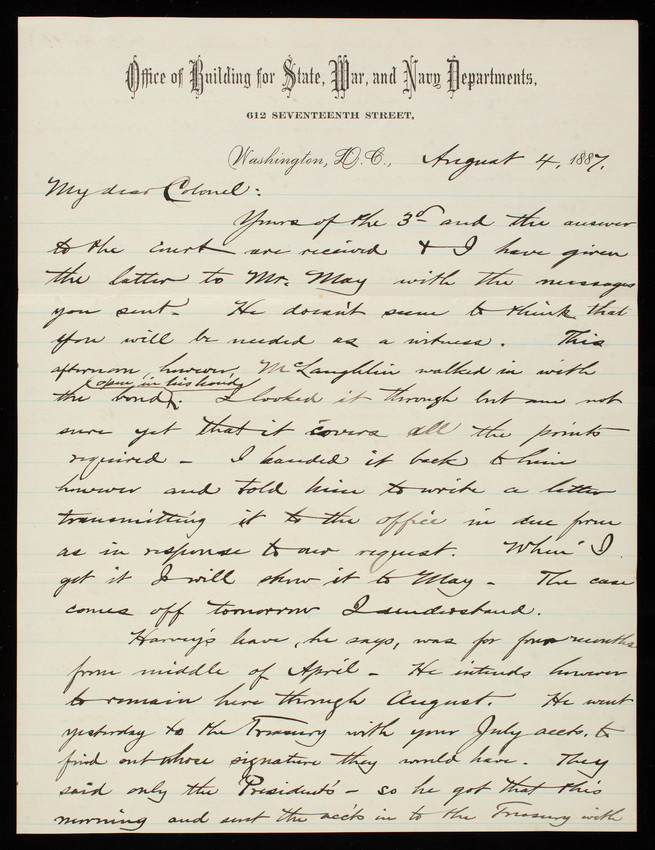 Office of Building for State, War, and Navy Departments,
612 SEVENTEENTH STREET,
Washington, D.C., August 4, 1887.
My dear Colonel:
Yours of the 3d and the answer
to the court are received & I have given
the latter to Mr. May with the messages
you sent. He doesn't seem to think that
you will be needed as a witness. This
afternoon, however, McLaughlin walked in with
(open in his hand)
the bond; I looked it through but am not
sure yet that it covers all the points
required – I handed it back to him
however and told him to write a letter
transmitting it to the office in due form
as in response to our request. When I
get it I will show it to May – The case
comes off tomorrow I understand.
Harvey's leave, he says, was for four months
from middle of April – He intends however
to remain here through August. He went
yesterday to the Treasury with your July accts. to
find out whose signature they would have. They
said only the President's – so he got that this
morning and sent the accts in to the Treasury with